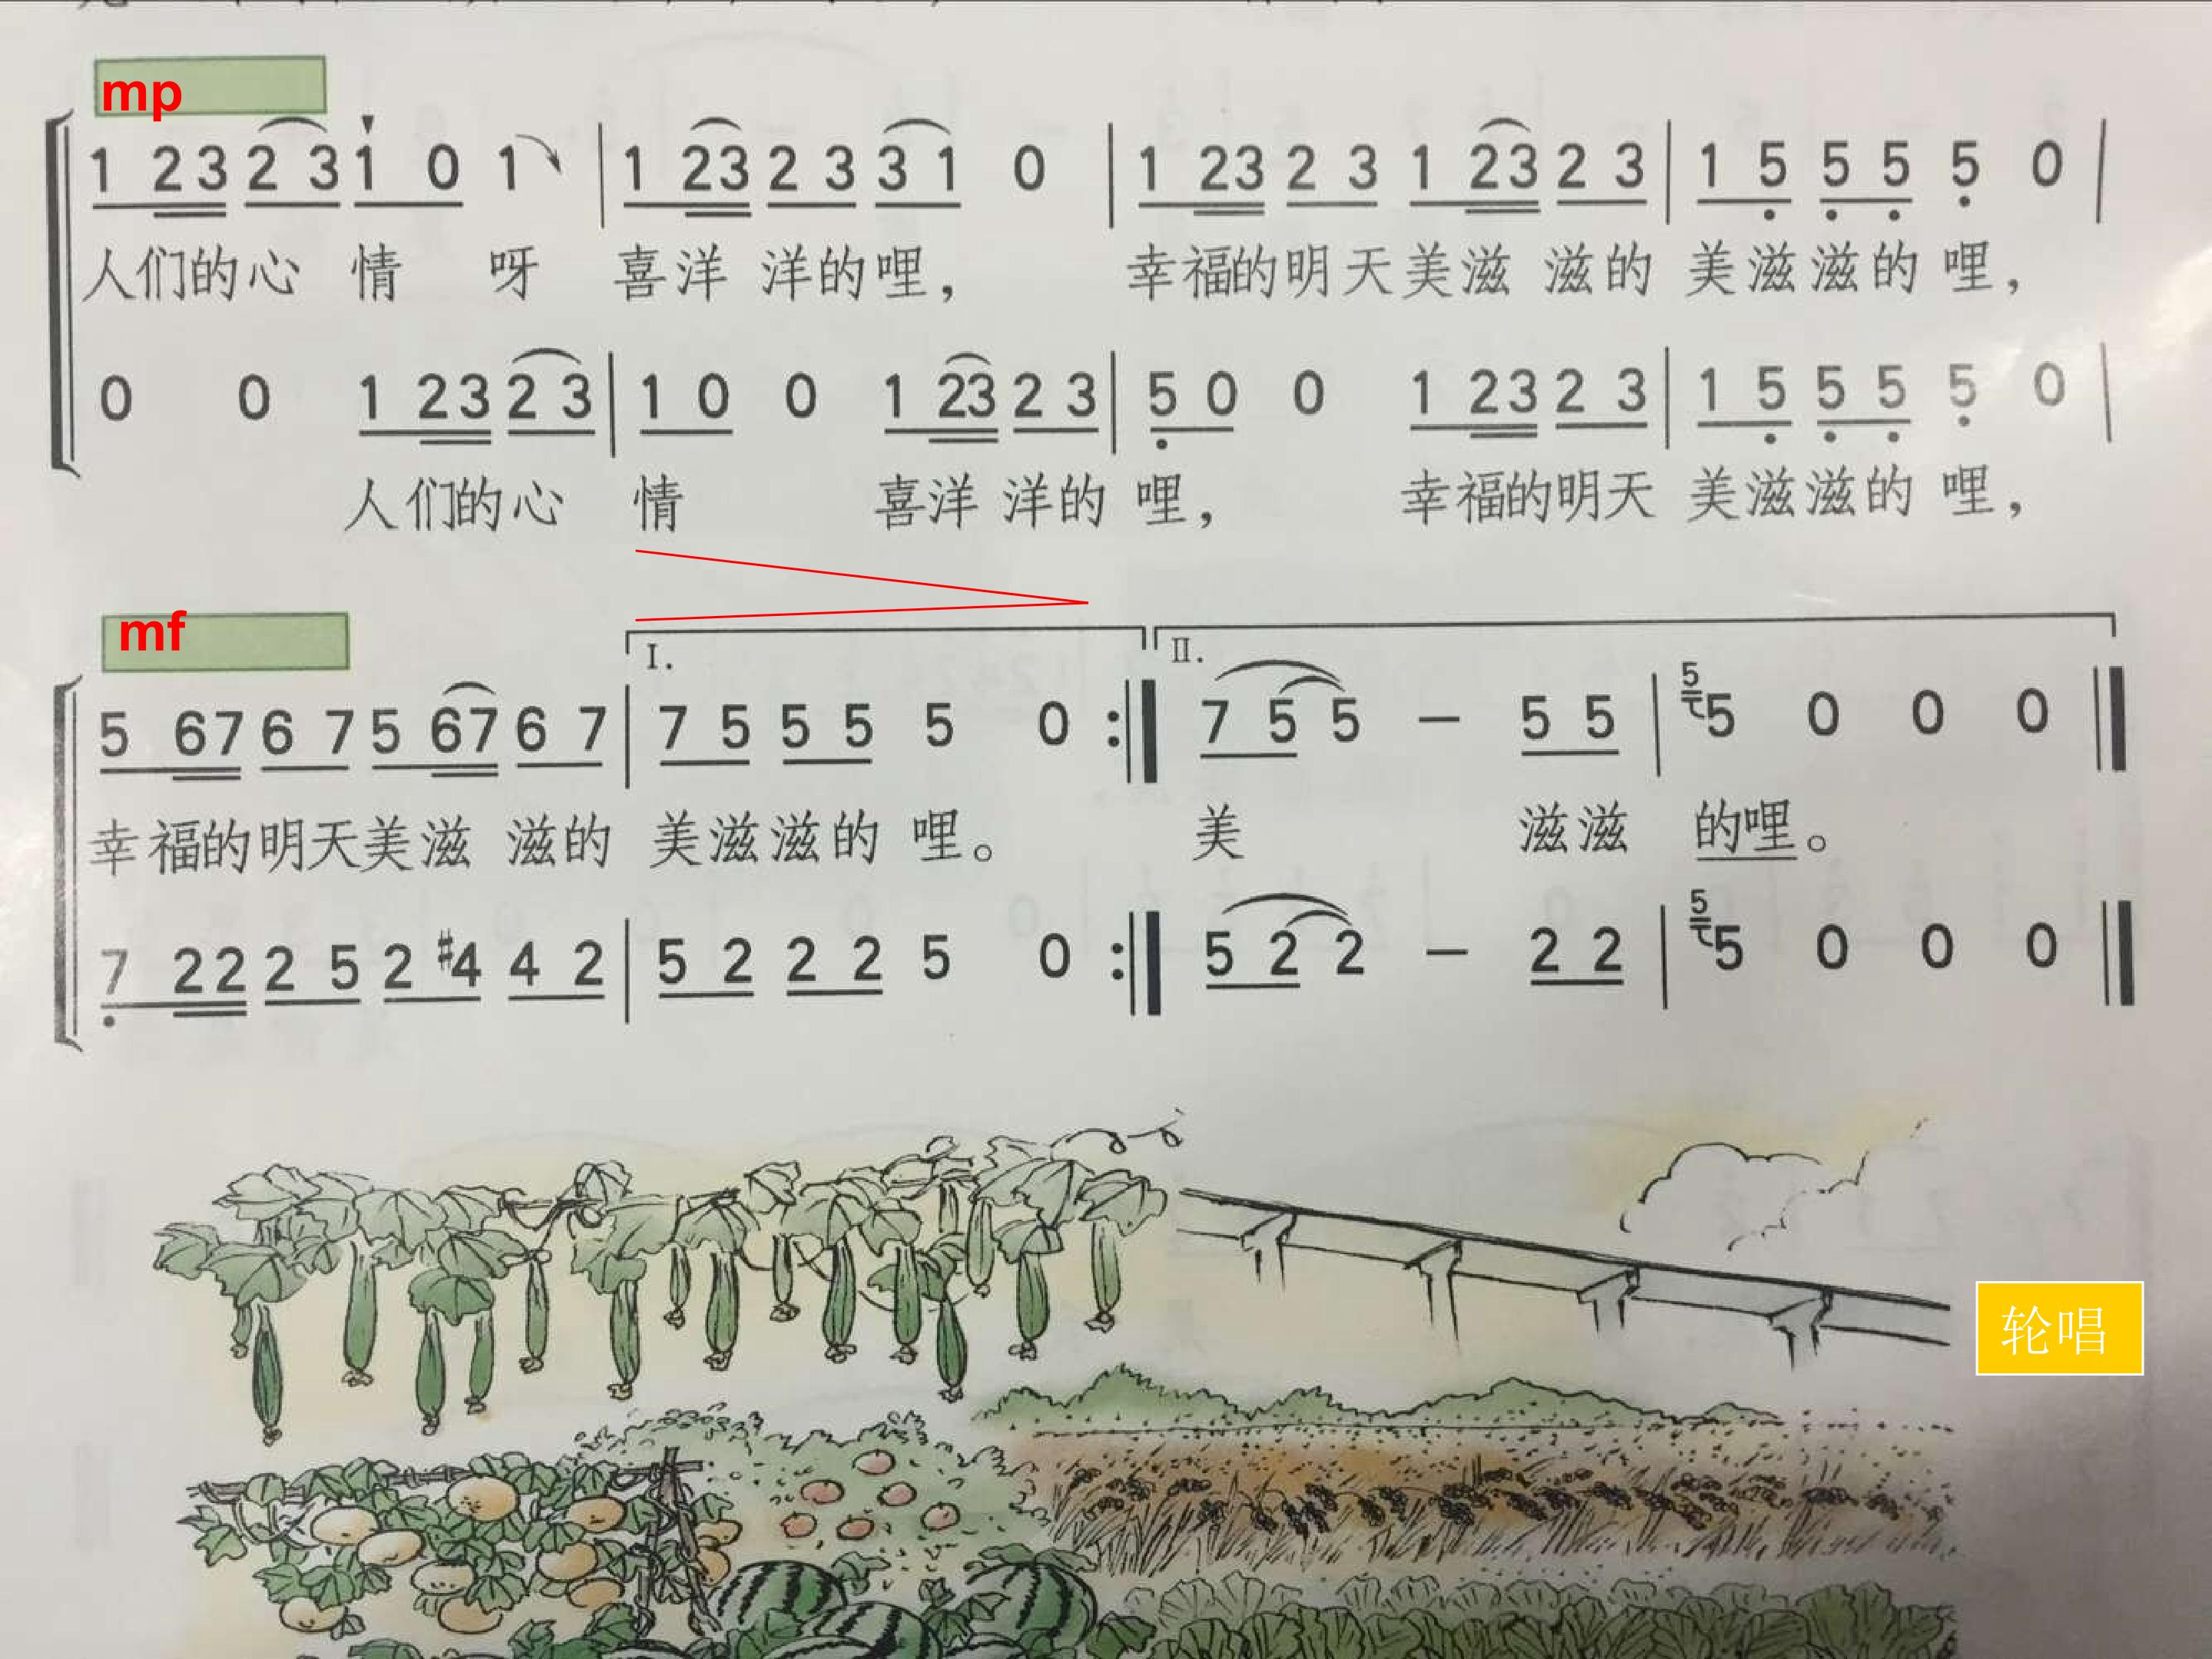 mp
1 23 2 3 1 0 1 | 1 23 2 3 3 1 0 | 1 23 2 3 1 23 2 3 | 1 5 5 5 5 0 |
人们的心 情 呀 喜洋 洋的哩， 幸福的明天美滋 滋的 美滋滋的 哩，
0 0 1 23 2 3 | 1 0 0 1 23 2 3 | 5 0 0 1 23 2 3 | 1 5 5 5 5 0 |
人们的心 情 喜洋 洋的 哩， 幸福的明天 美滋滋的 哩，
mf
I. II.
5 67 6 7 5 67 6 7 | 7 5 5 5 5 0 :‖ 7 5 5 — 5 5 | 5 5 0 0 0 ‖
幸福的明天美滋 滋的 美滋滋的 哩。 美 滋滋 的哩。
7 22 2 5 2 #4 4 2 | 5 2 2 2 5 0 :‖ 5 2 2 — 2 2 | 5 5 0 0 0 ‖
轮唱